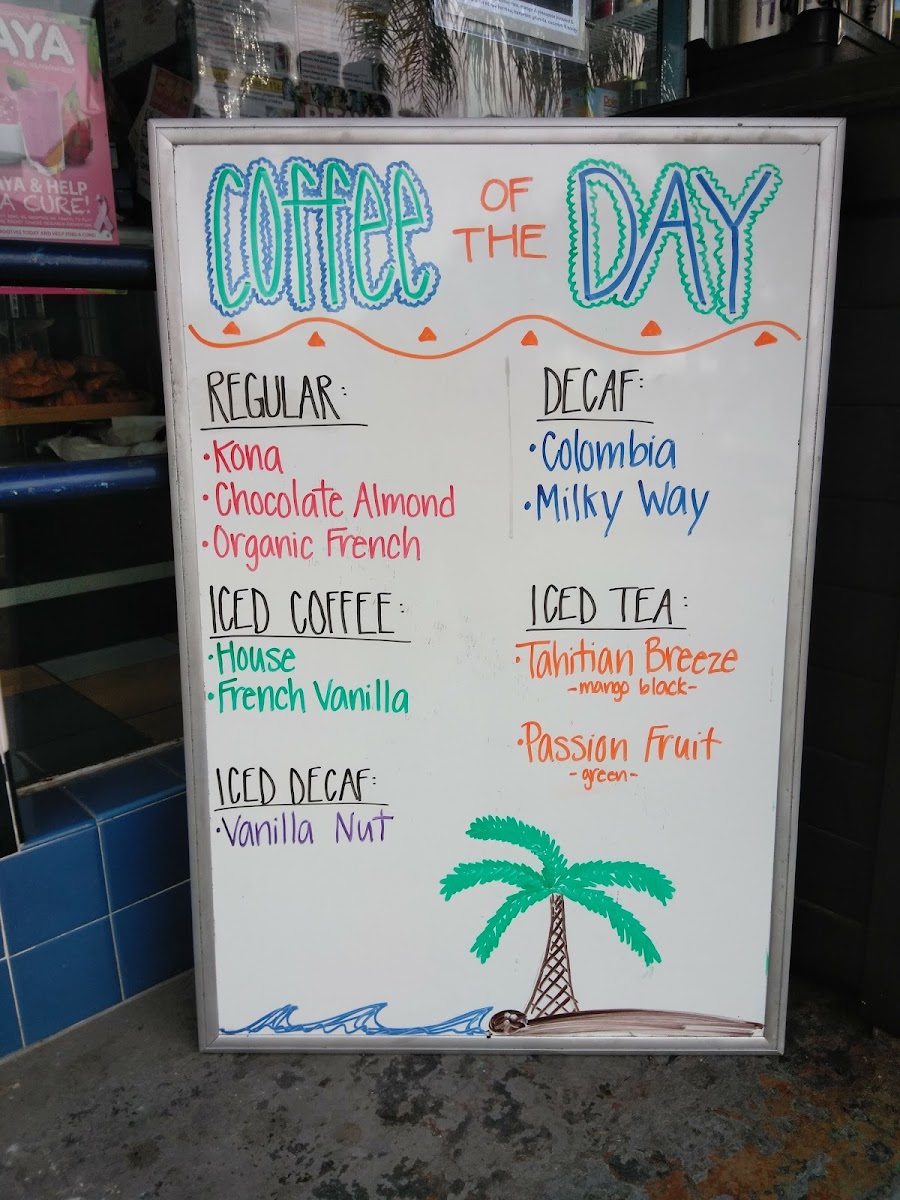 AYA
AYA & HELP
A CURE!
Coffee
OF
THE
DAY
REGULAR:
•Kona
•Chocolate Almond
•Organic French
DECAF:
•Colombia
•Milky Way
ICED COFFEE:
•House
•French Vanilla
ICED TEA:
•Tahitian Breeze
-mango black-
•Passion Fruit
-green-
ICED DECAF:
•Vanilla Nut